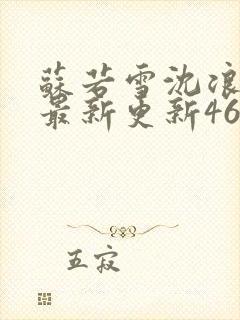 蘇若雪沈浪
最新更新46
五寂